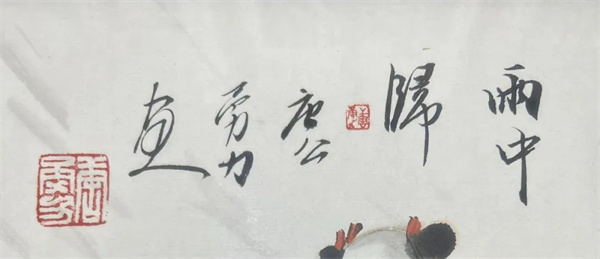 雨中
歸
唐公
勇力
畫